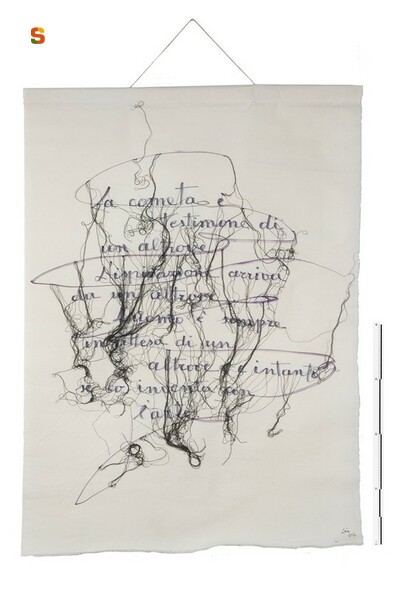 la cometa è
testimone di
un altrove
L'ispirazione arriva
da un altrove
l'uomo è sempre
in attesa di un
altrove e intanto
se lo inventa con
l'arte